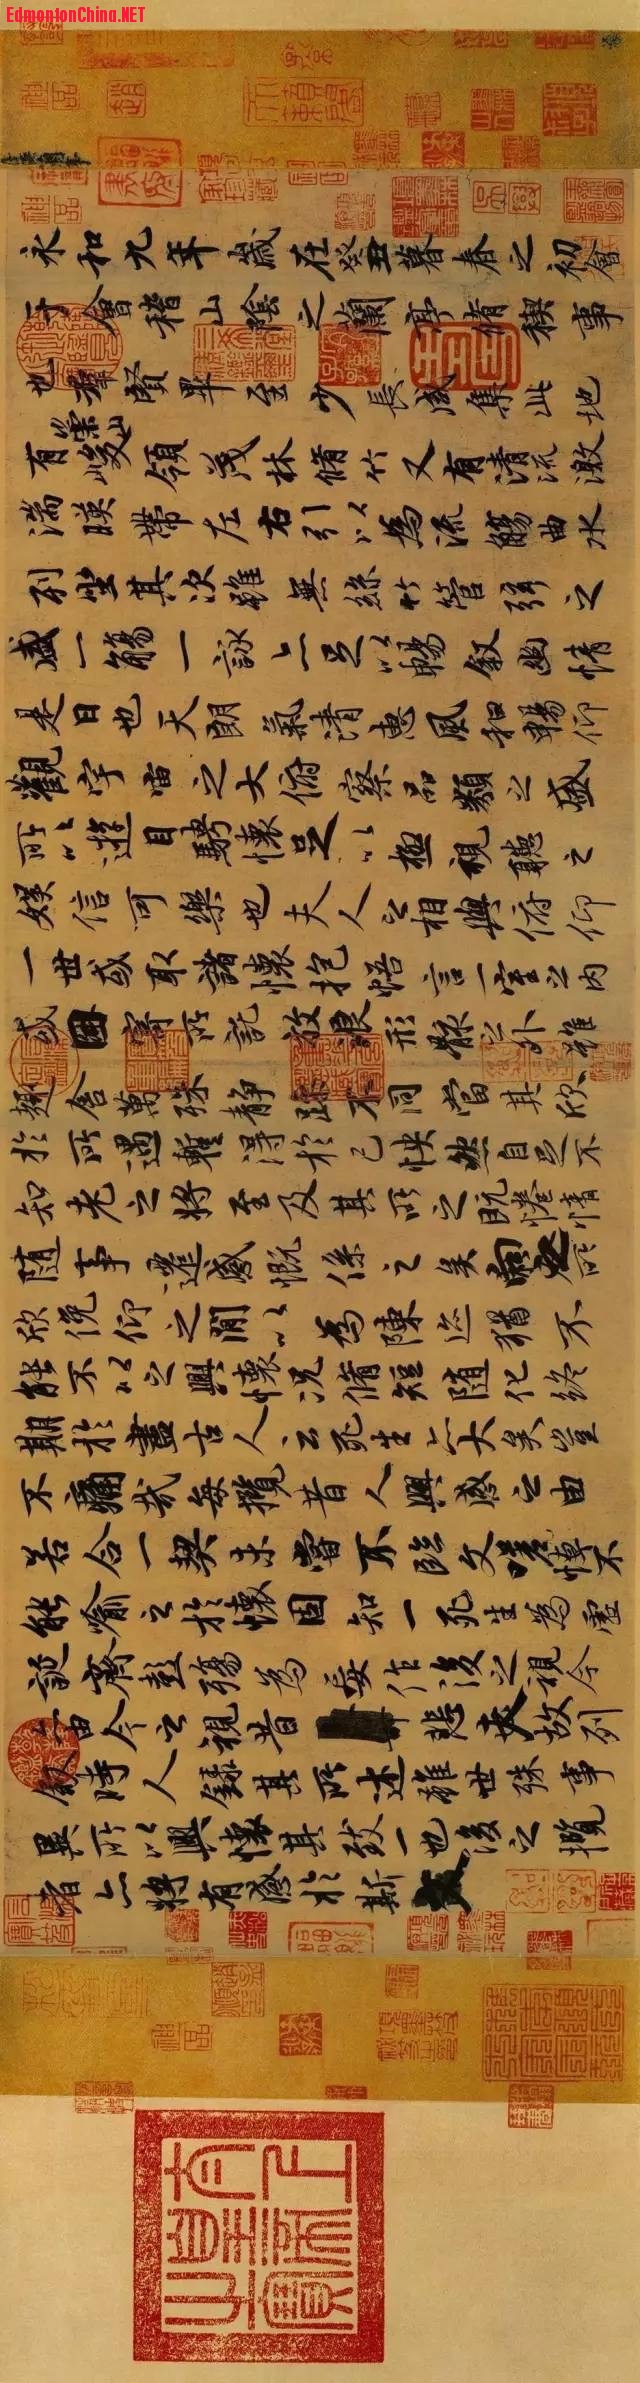 EdmontonChina.NET
永和九年歲在癸丑暮春之初會
于會稽山陰之蘭亭脩稧事
也羣賢畢至少長咸集此地
有崇山峻領茂林脩竹又有清流激
湍暎帶左右引以為流觴曲水
列坐其次雖無絲竹管弦之
盛一觴一詠亦足以暢敘幽情
是日也天朗氣清惠風和暢仰
觀宇宙之大俯察品類之盛
所以遊目騁懷足以極視聽之
娛信可樂也夫人之相與俯仰
一世或取諸懷抱悟言一室之內
或因寄所託放浪形骸之外雖
趣舍萬殊靜躁不同當其欣
於所遇蹔得於己怏然自足不
知老之將至及其所之既惓情
隨事遷感慨係之矣向之所
欣俛仰之閒以為陳迹猶不
能不以之興懷況脩短隨化終
期於盡古人云死生亦大矣豈
不痛哉每攬昔人興感之由
若合一契未嘗不臨文嗟悼不
能喻之於懷固知一死生為虛
誕齊彭殤為妄作後之視今
亦由今之視昔悲夫故列
敘時人錄其所述雖世殊事
異所以興懷其致一也後之攬
者亦將有感於斯文